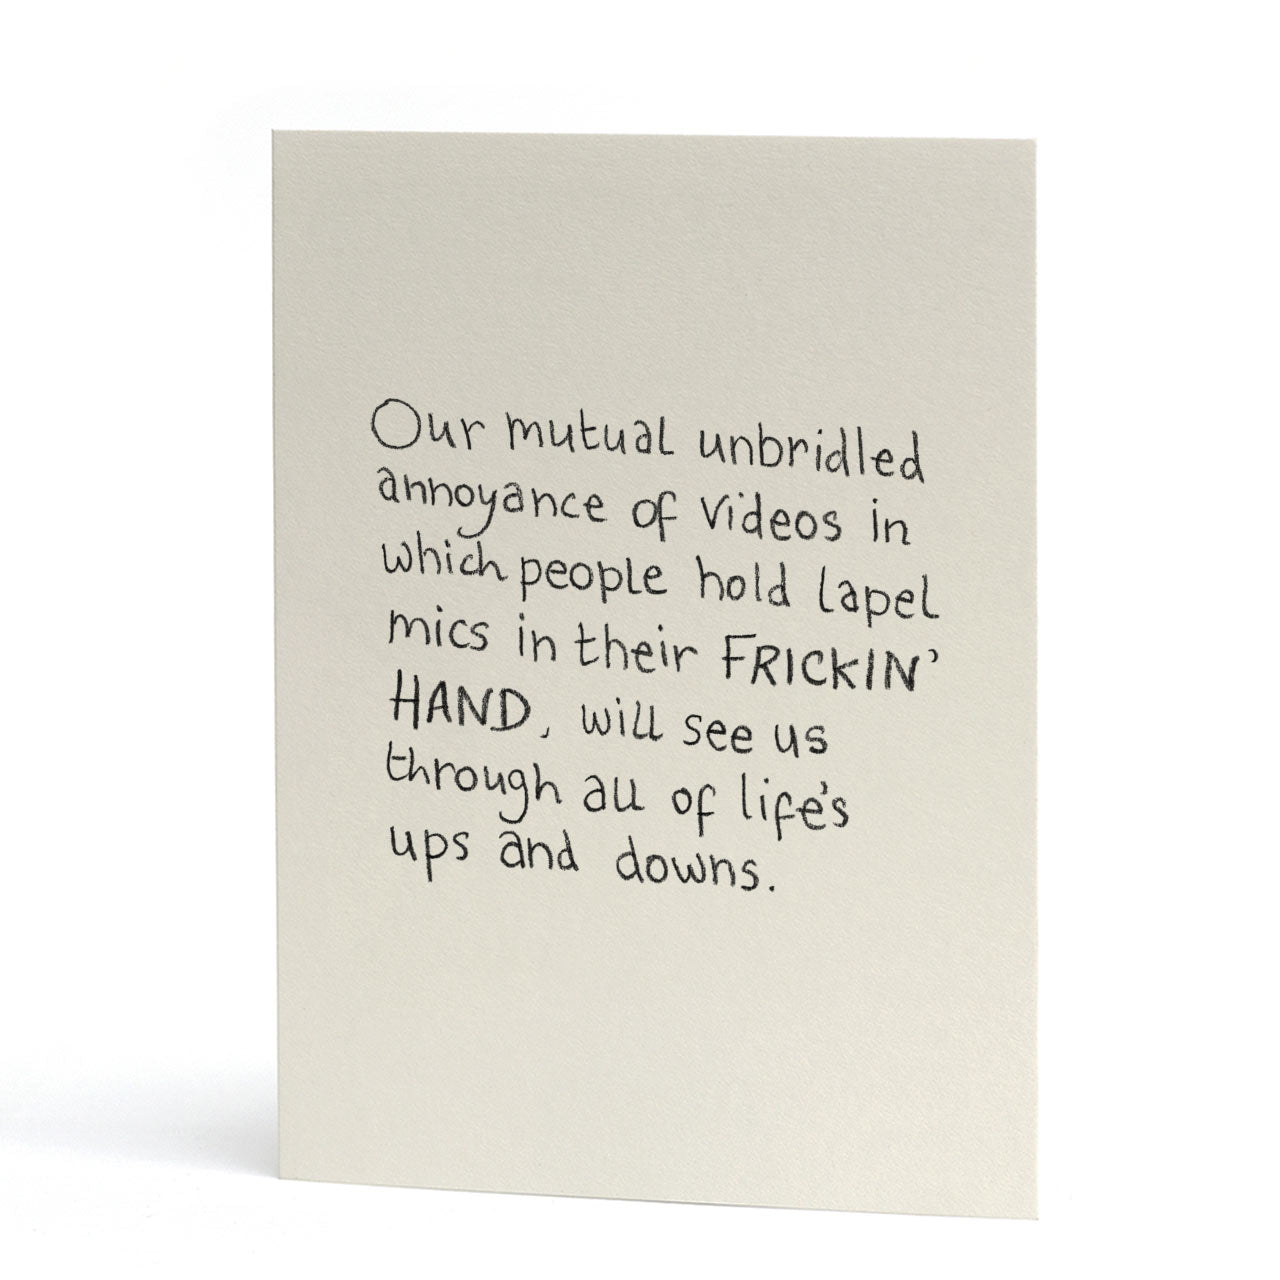 Our mutual unbridled
annoyance of videos in
which people hold lapel
mics in their FRICKIN'
HAND, will see us
through all of life's
ups and downs.